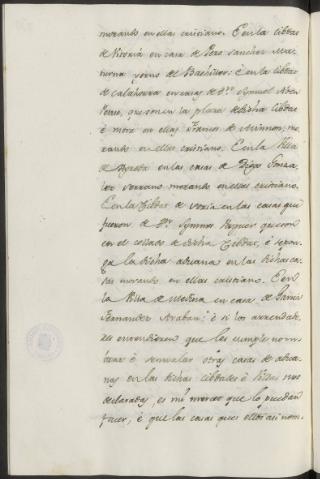 morando en ellas cristiano. E en la cibdat
de Vitoria en casa de Pero Sanchez
yerno de Bachiller: è en la cibdat
de Calahorra en casas de Dn. Symuel Aben
que son en la plaza de dicha cibdat
è more en ellas Franco. de mo-
rando en ellas cristiano. E en la Villa
de Agreda en las casas de Diego Gonza-
lez serrano morando en ellas cristiano.
E en la Cibdat de Soria en las casas que
fueron de Dn. Symuel que son
en el collado de dicha Cibdat, è se pon-
ga la dicha aduana en las dichas ca-
sas morando en ellas cristiano. E en
la Villa de Molina en casa de Garcia
Fernandez è si los arrendado-
res entendieren que les cumple nom-
brar è sennalar otras casas de adua-
nas en las dichas cibdades è Villas sus
declaradas, es mi merced que lo puedan
facer, è que las casas que ellos asi nom-